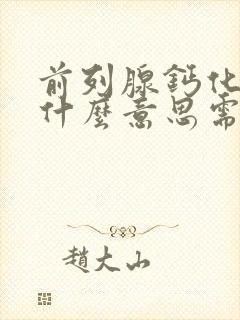 前列腺鈣化
什麼意思需
趙大山